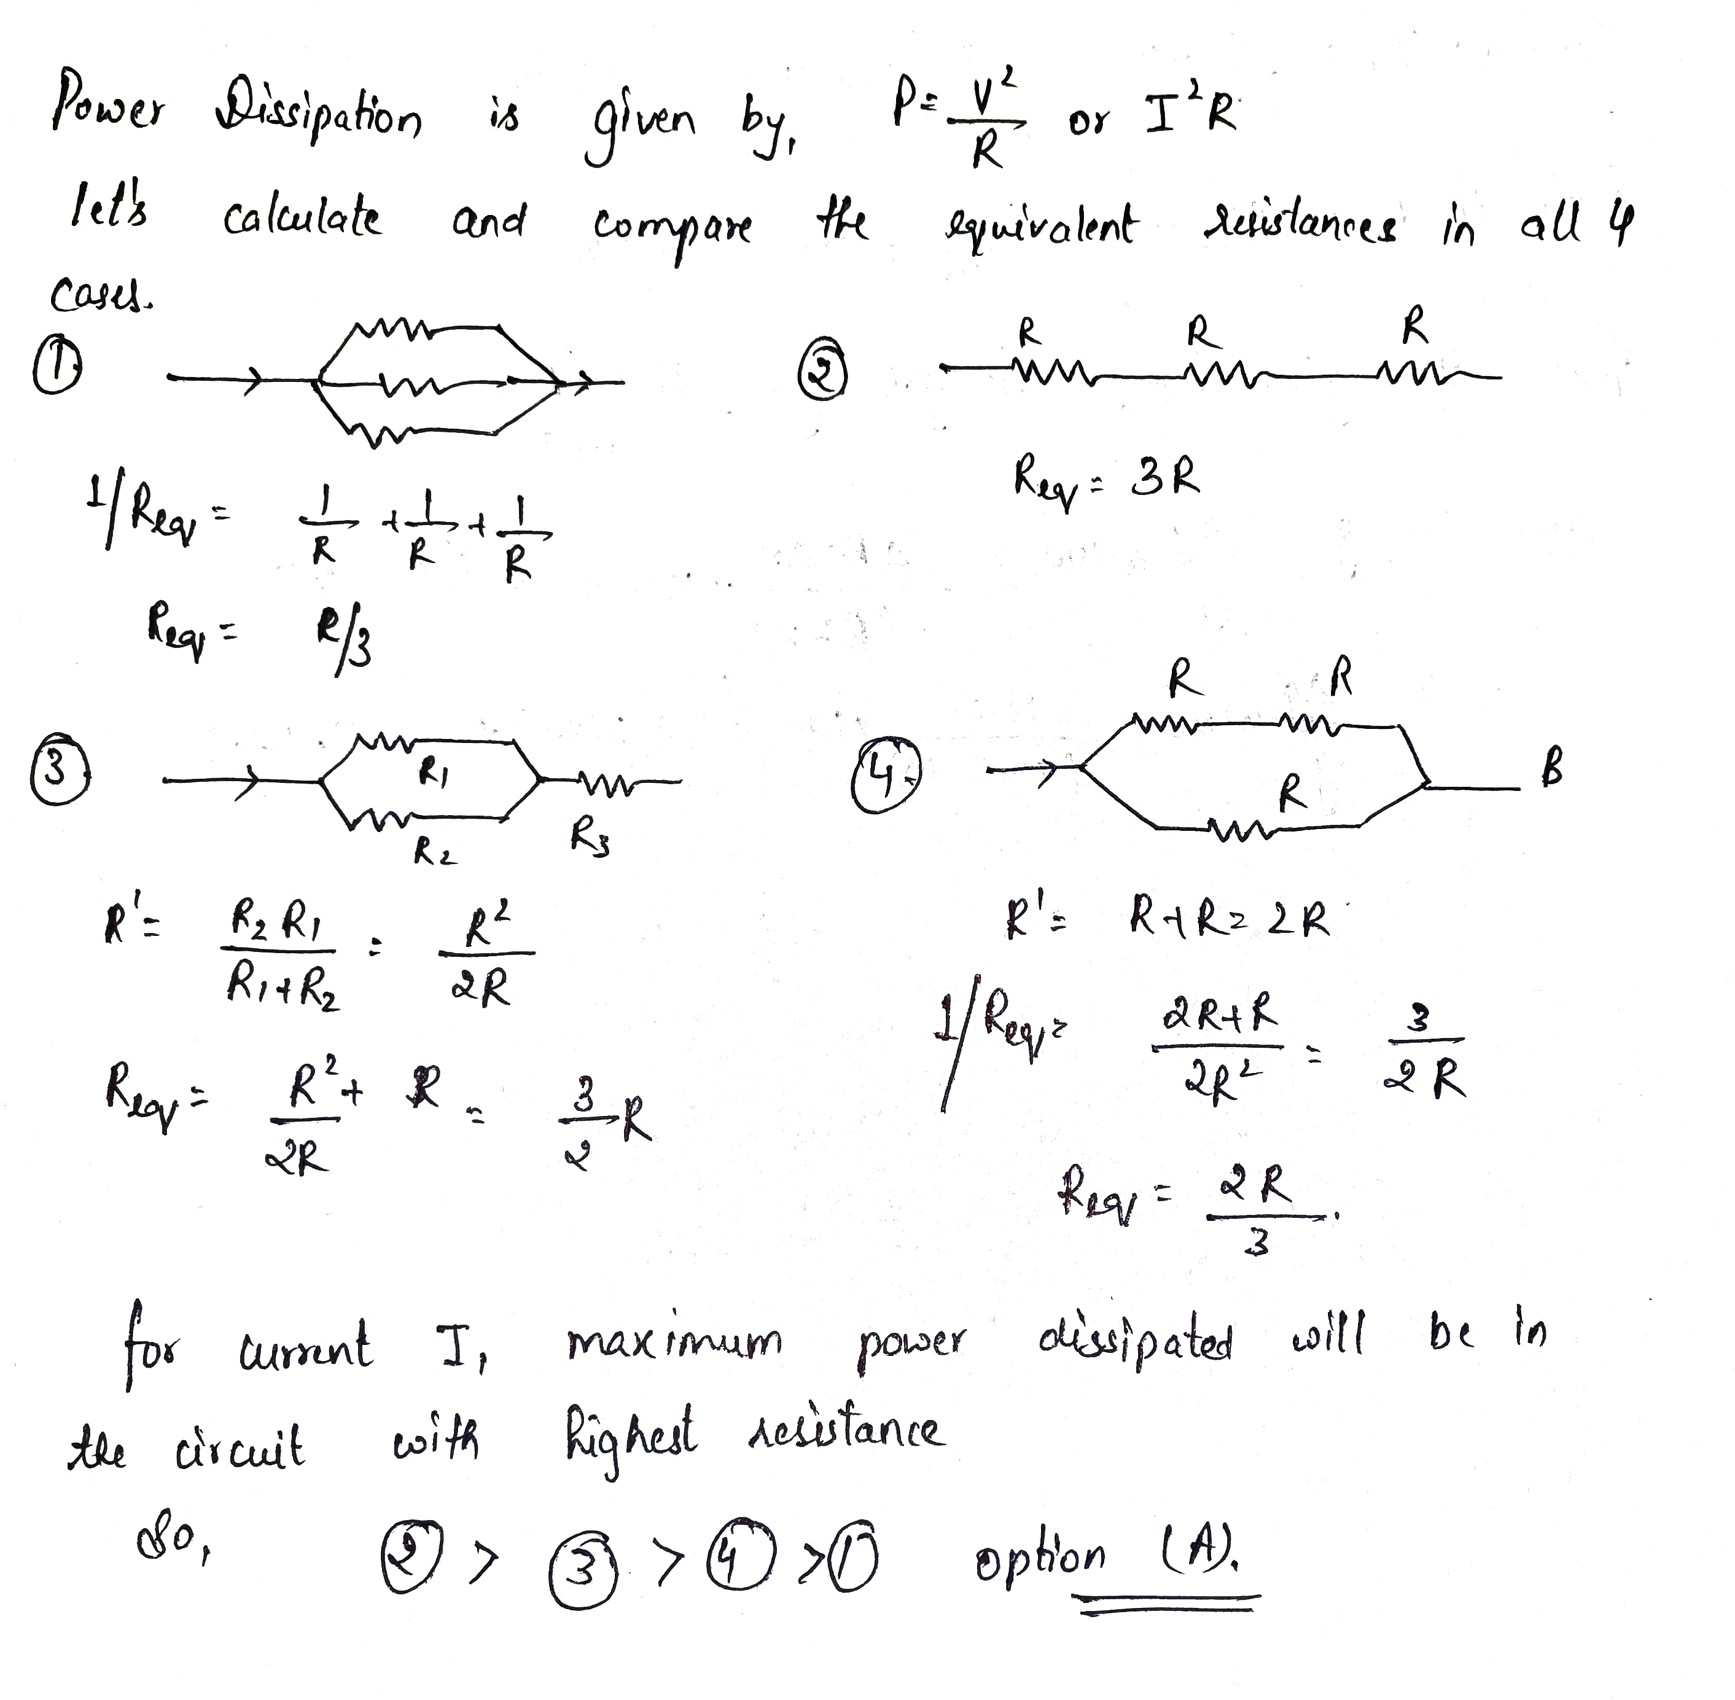 Power Dissipation is given by, P = V²/R or I²R
let's calculate and compare the equivalent resistances in all 4
cases.
①
② R R R
1/Req = 1/R + 1/R + 1/R
Req = 3R
Req = R/3
③ R1 R2 R3
④ R R R B
R' = R2 R1/R1+R2 = R²/2R
R' = R+R = 2R
Req = R²/2R + R = 3/2 R
1/Req = 2R+R/2R² = 3/2R
Req = 2R/3.
for current I, maximum power dissipated will be in
the circuit with highest resistance
So, ② > ③ > ④ > ① option (A).